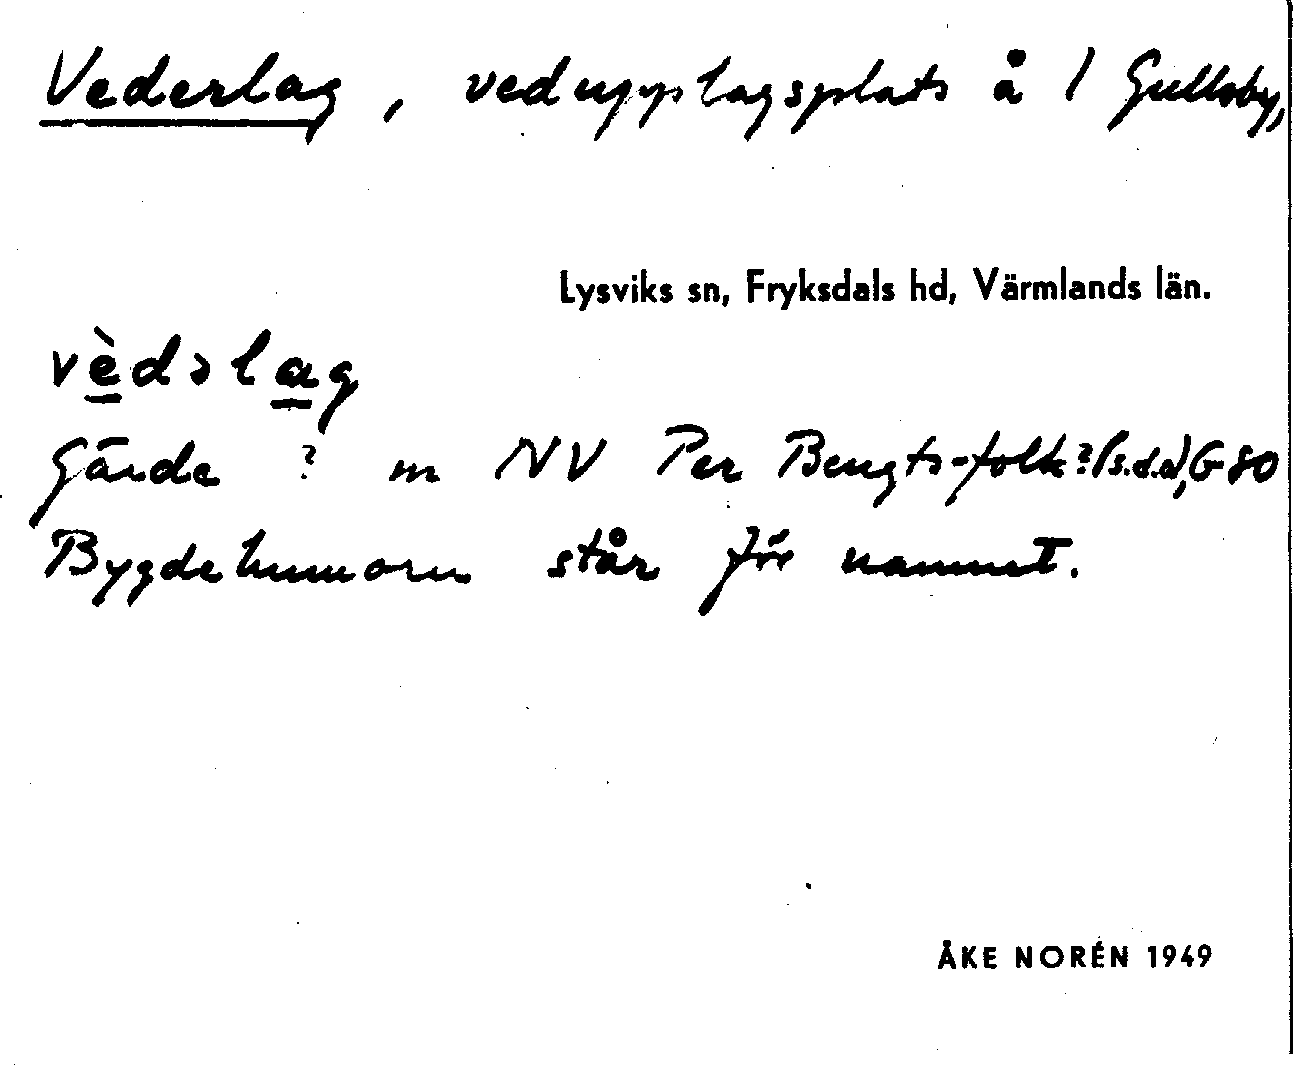 Vederlag, vedupplagsplats å 1 Gullsby,
Lysviks sn, Fryksdals hd, Värmlands län.
vèdɘlag
Gärde ? m NV Per Bengts-folk?(s.d.o), G 80
Bygdehumorn står för namnet.
ÅKE NORÉN 1949